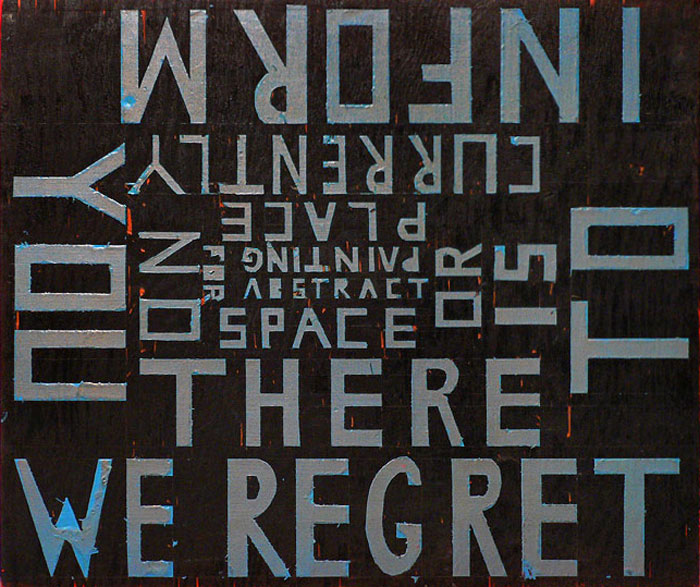 WE REGRET
TO
INFORM
YOU
THERE
IS
CURRENTLY
NO
SPACE
OR
PLACE
FOR
ABSTRACT
PAINTING